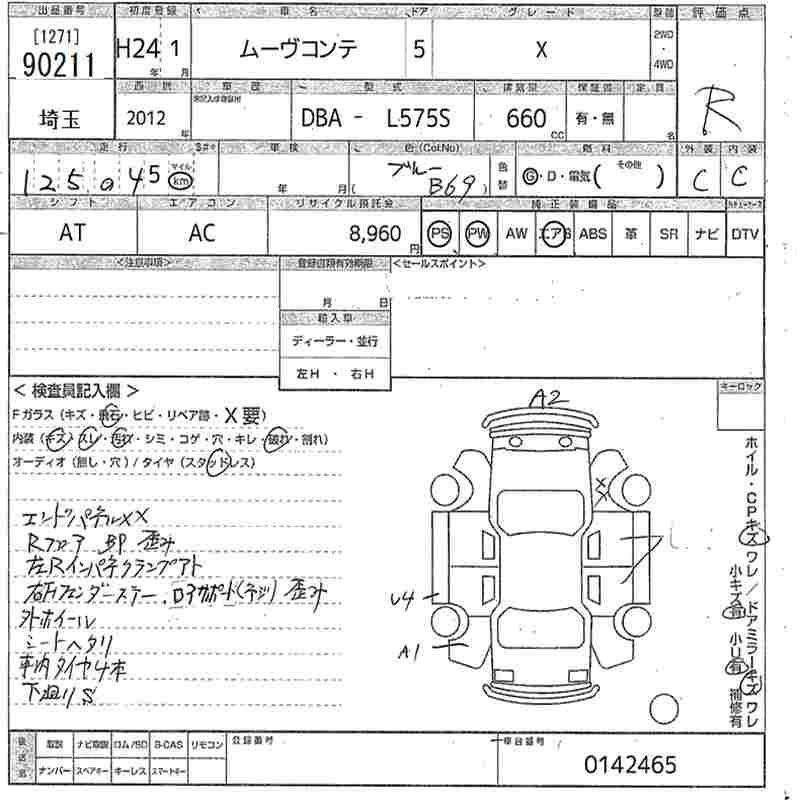 出品番号 初度登録 車名 ドア グレード 装備 評価点
[1271]
90211
H24 年 1 月 ムーヴコンテ 5 X 2WD・4WD R
埼玉 西暦 車歴 型式 排気量 保証書 定員
2012 年 DBA - L575S 660 CC 有・無 名
走行 車検 色(Col.No) 燃料 外装 内装
125,045 マイル km 年 月 ブルー B69 色替 G・D・電気( その他 ) C C
シフト エアコン リサイクル預託金 純正装備品
AT AC 8,960 円 PS PW AW エアB ABS 革 SR ナビ DTV
<注意事項> 登録書類有効期限 <セールスポイント>
月 日
輸入車
ディーラー・並行
左H ・ 右H
< 検査員記入欄 > キーロック
A2
Fガラス (キズ・飛石・ヒビ・リペア跡・X要)
内装 (キズ・スレ・汚れ・シミ・コゲ・穴・キレ・破れ・割れ)
オーディオ (無し・穴) / タイヤ (スタッドレス)
エンドパネルXX
Rフロア BP 歪み
左Rインパネクランプアト
右Fフェンダーステー、ロアサポート(ネジ) 歪み
外ホイール
シートヘタリ
車内タイヤ4本
下廻りS
U4
A1
X
X
ホイル・CPキズ ワレ / ドアミラーキズ ワレ
小キズ有 小U有 補修有
後送品 取説 ナビ取説 ロム/SD B-CAS リモコン 登録番号 車台番号
ナンバー スペアキー キーレス スマートキー 0142465